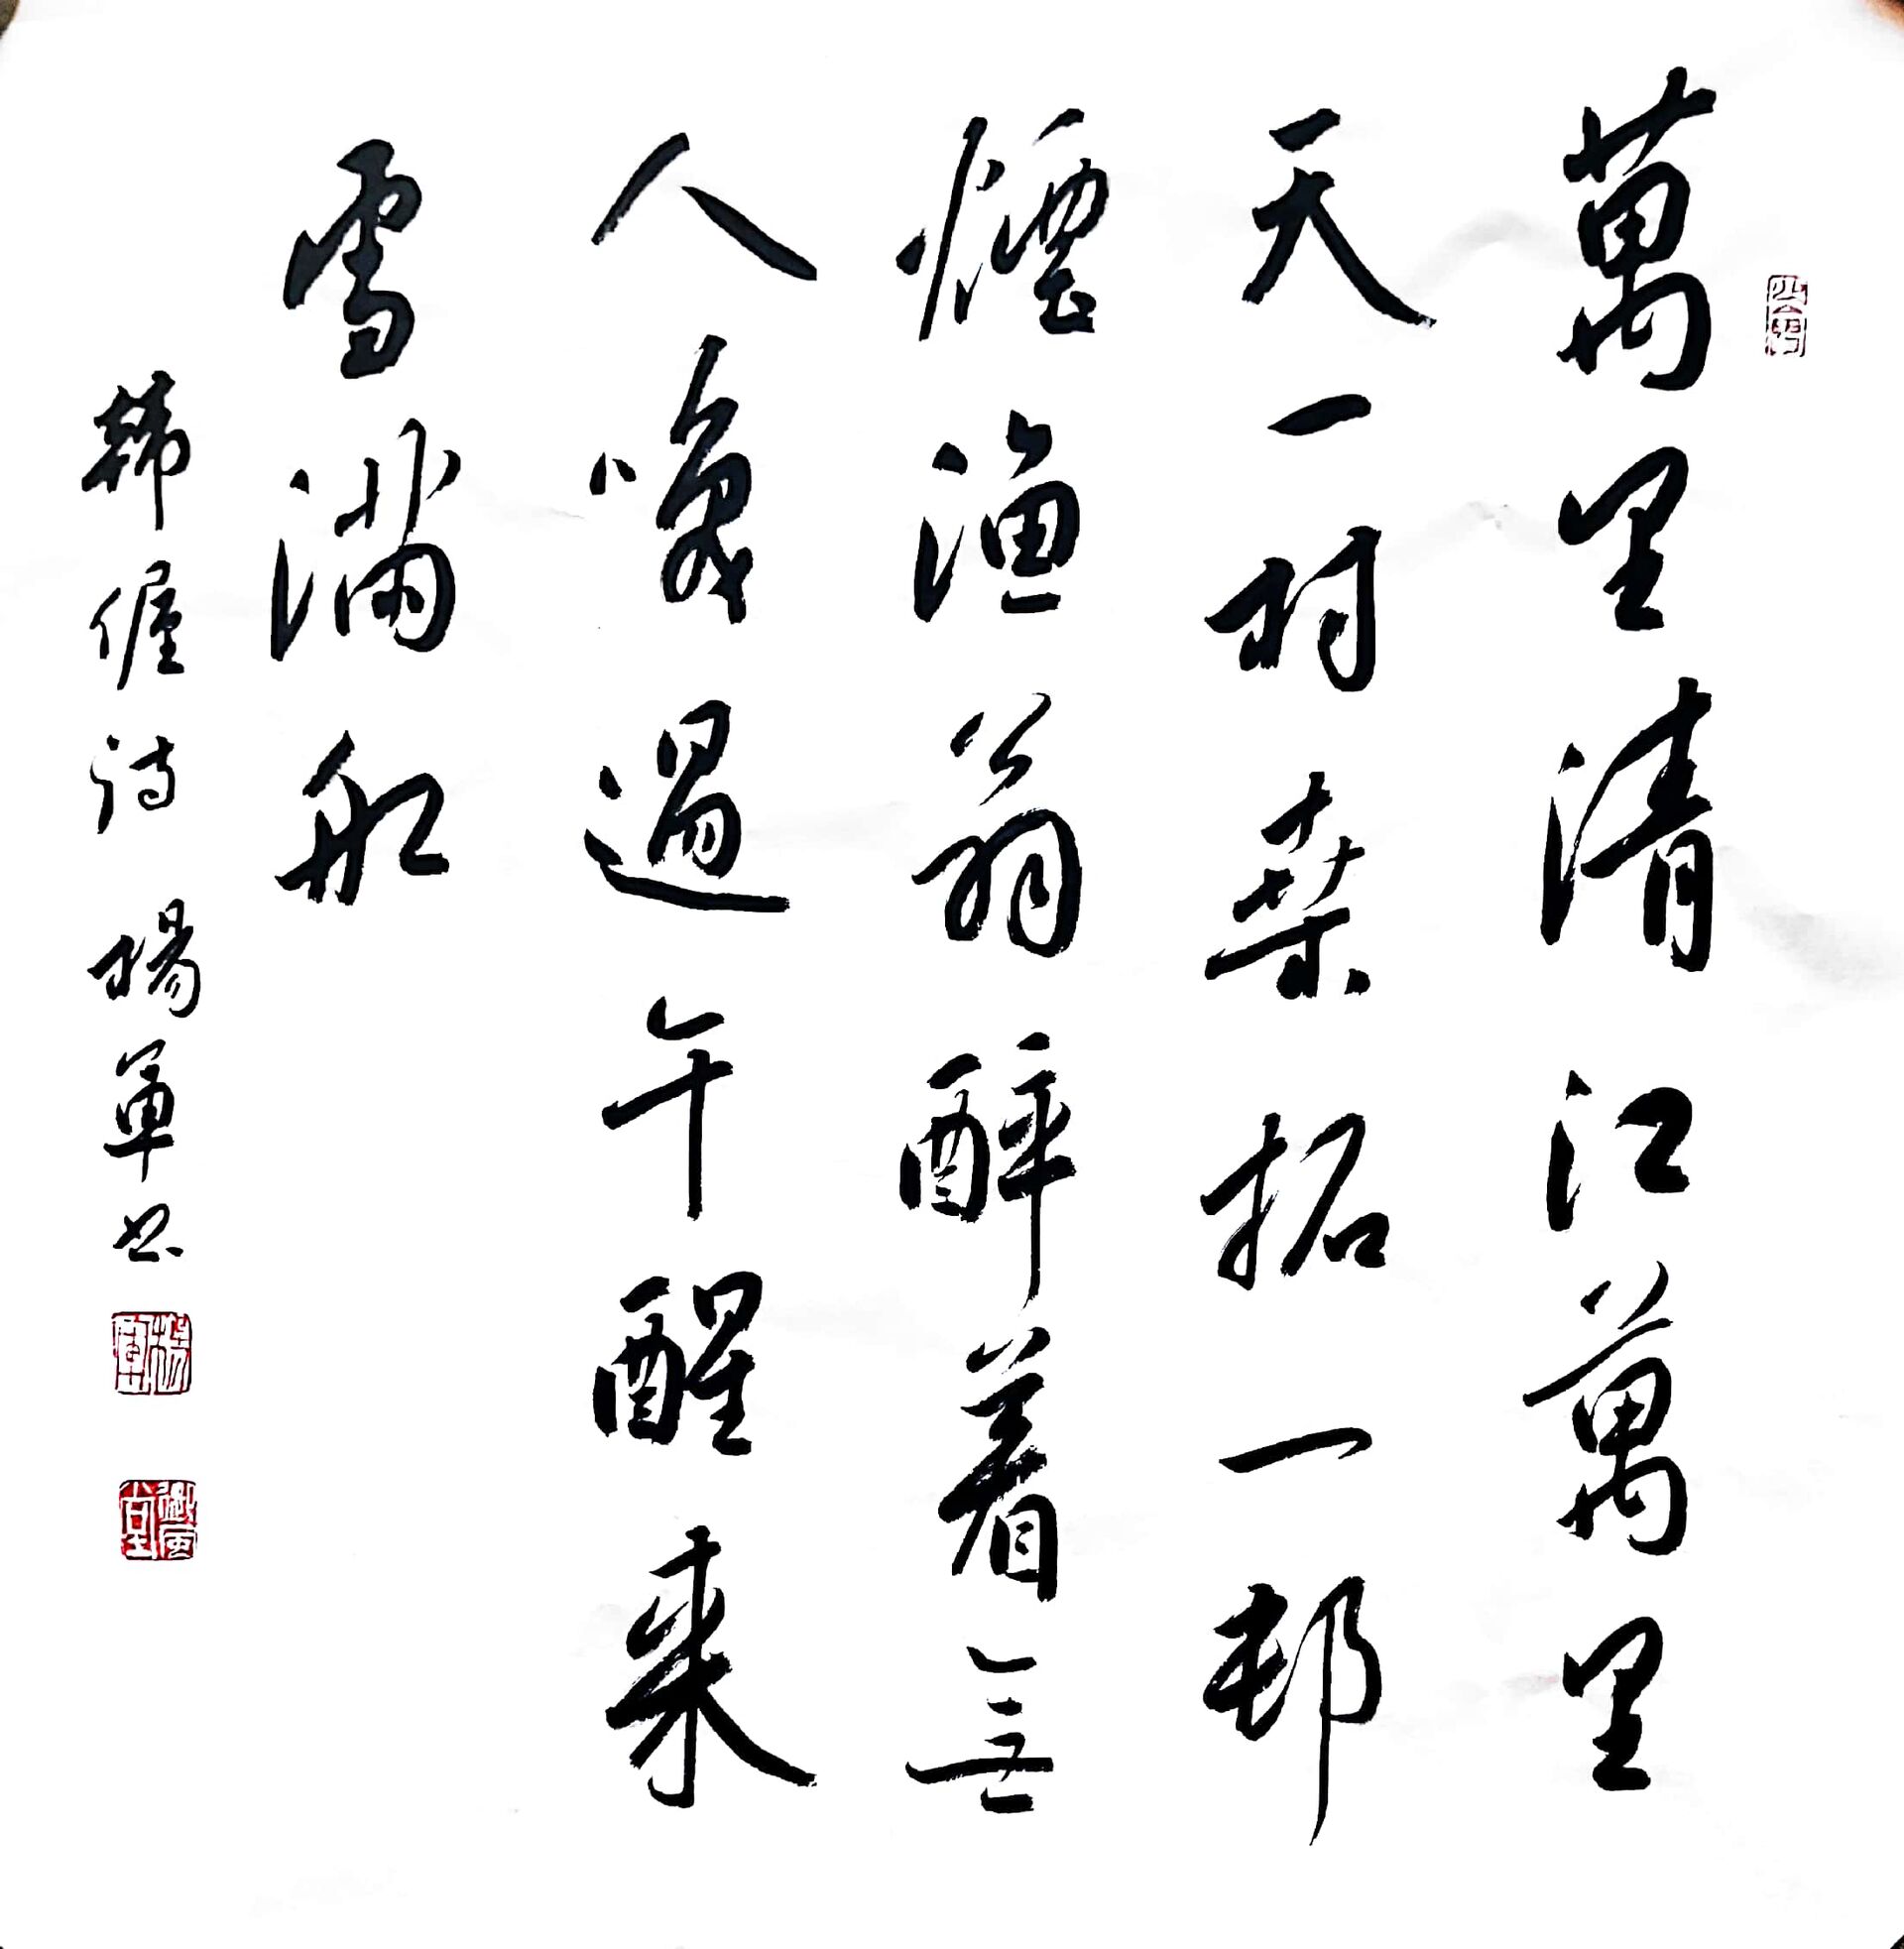 萬里清江萬里
天一村桑柘一邨
煙漁翁醉着無
人喚過午醒来
雪滿船
韓偓詩 楊軍书
楊軍